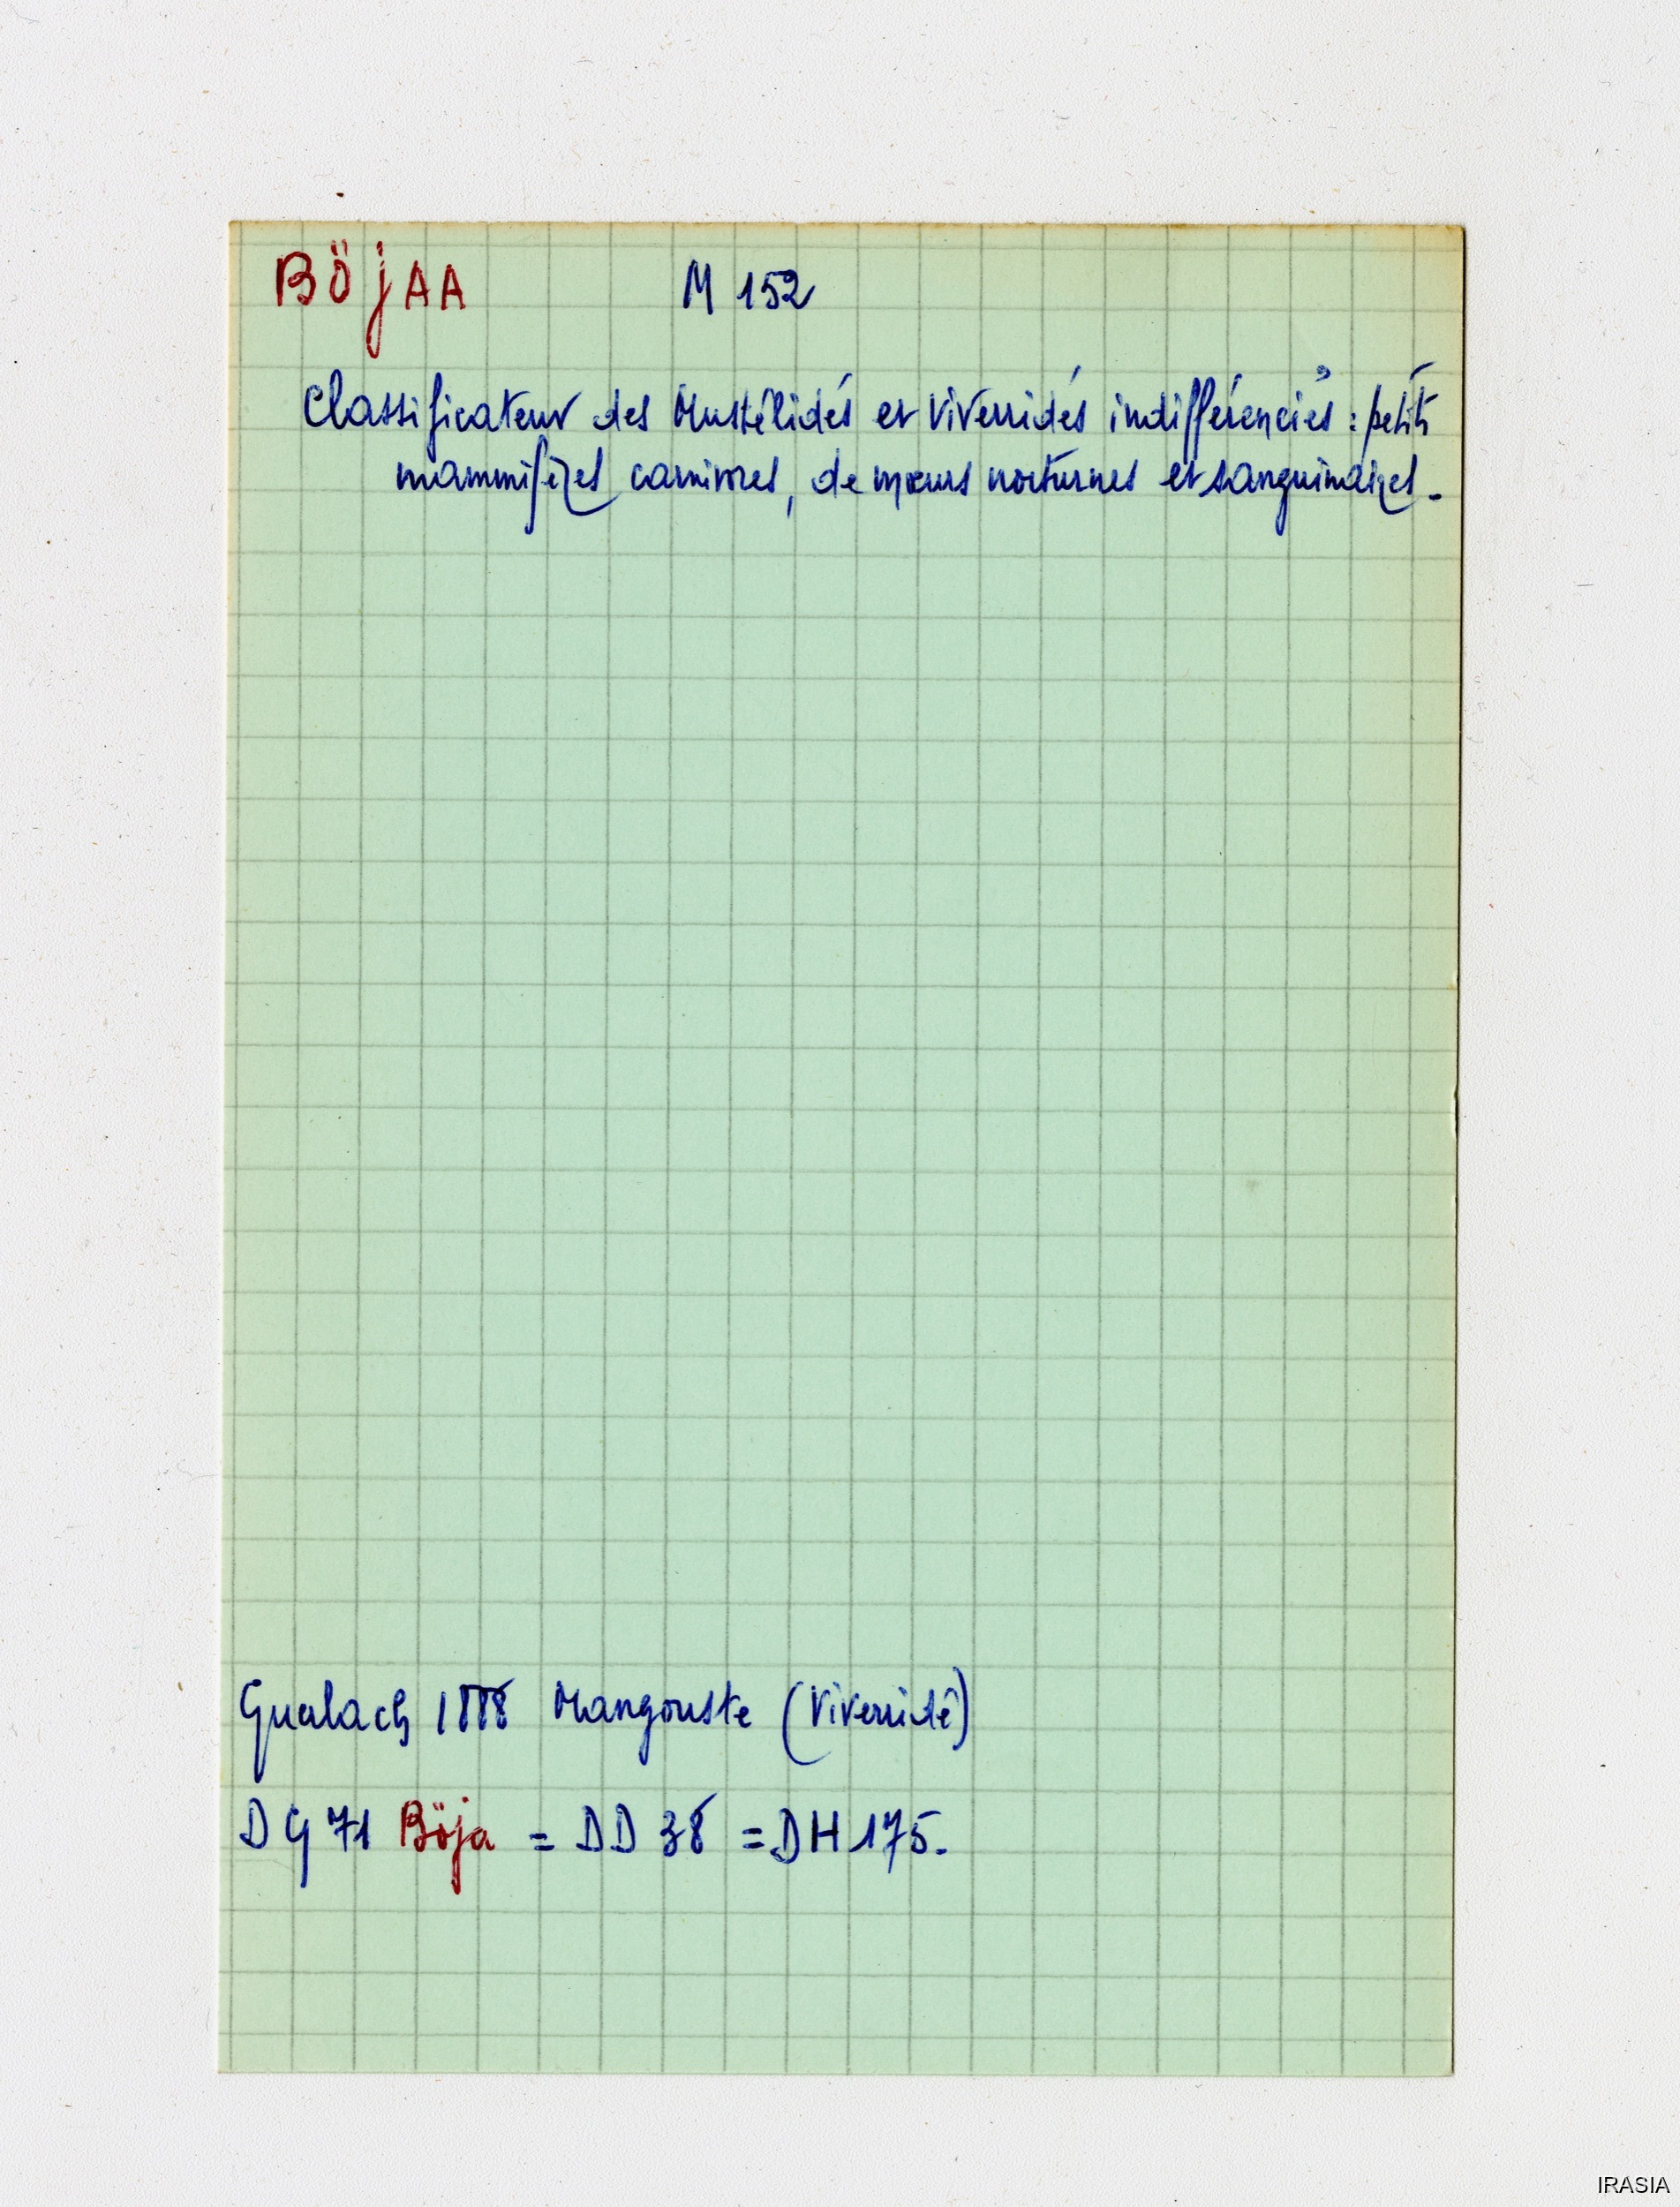 BöjAA M 152
Classificateur des Mustélidés et Viverridés indifférenciés : petits
mammifères carnivores, de mœurs nocturnes et sanguinaires.
Guerlach 1888 Mangouste (Viverridé)
DG 71 Böja = DD 38 = DH 175.
IRASIA